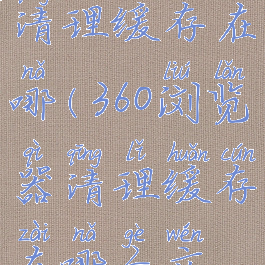 清理缓存在
nǎ liú lǎn
哪(360浏览
qì qīng lǐ huǎn cún
器清理缓存
zài nǎ gè wén
在哪个文